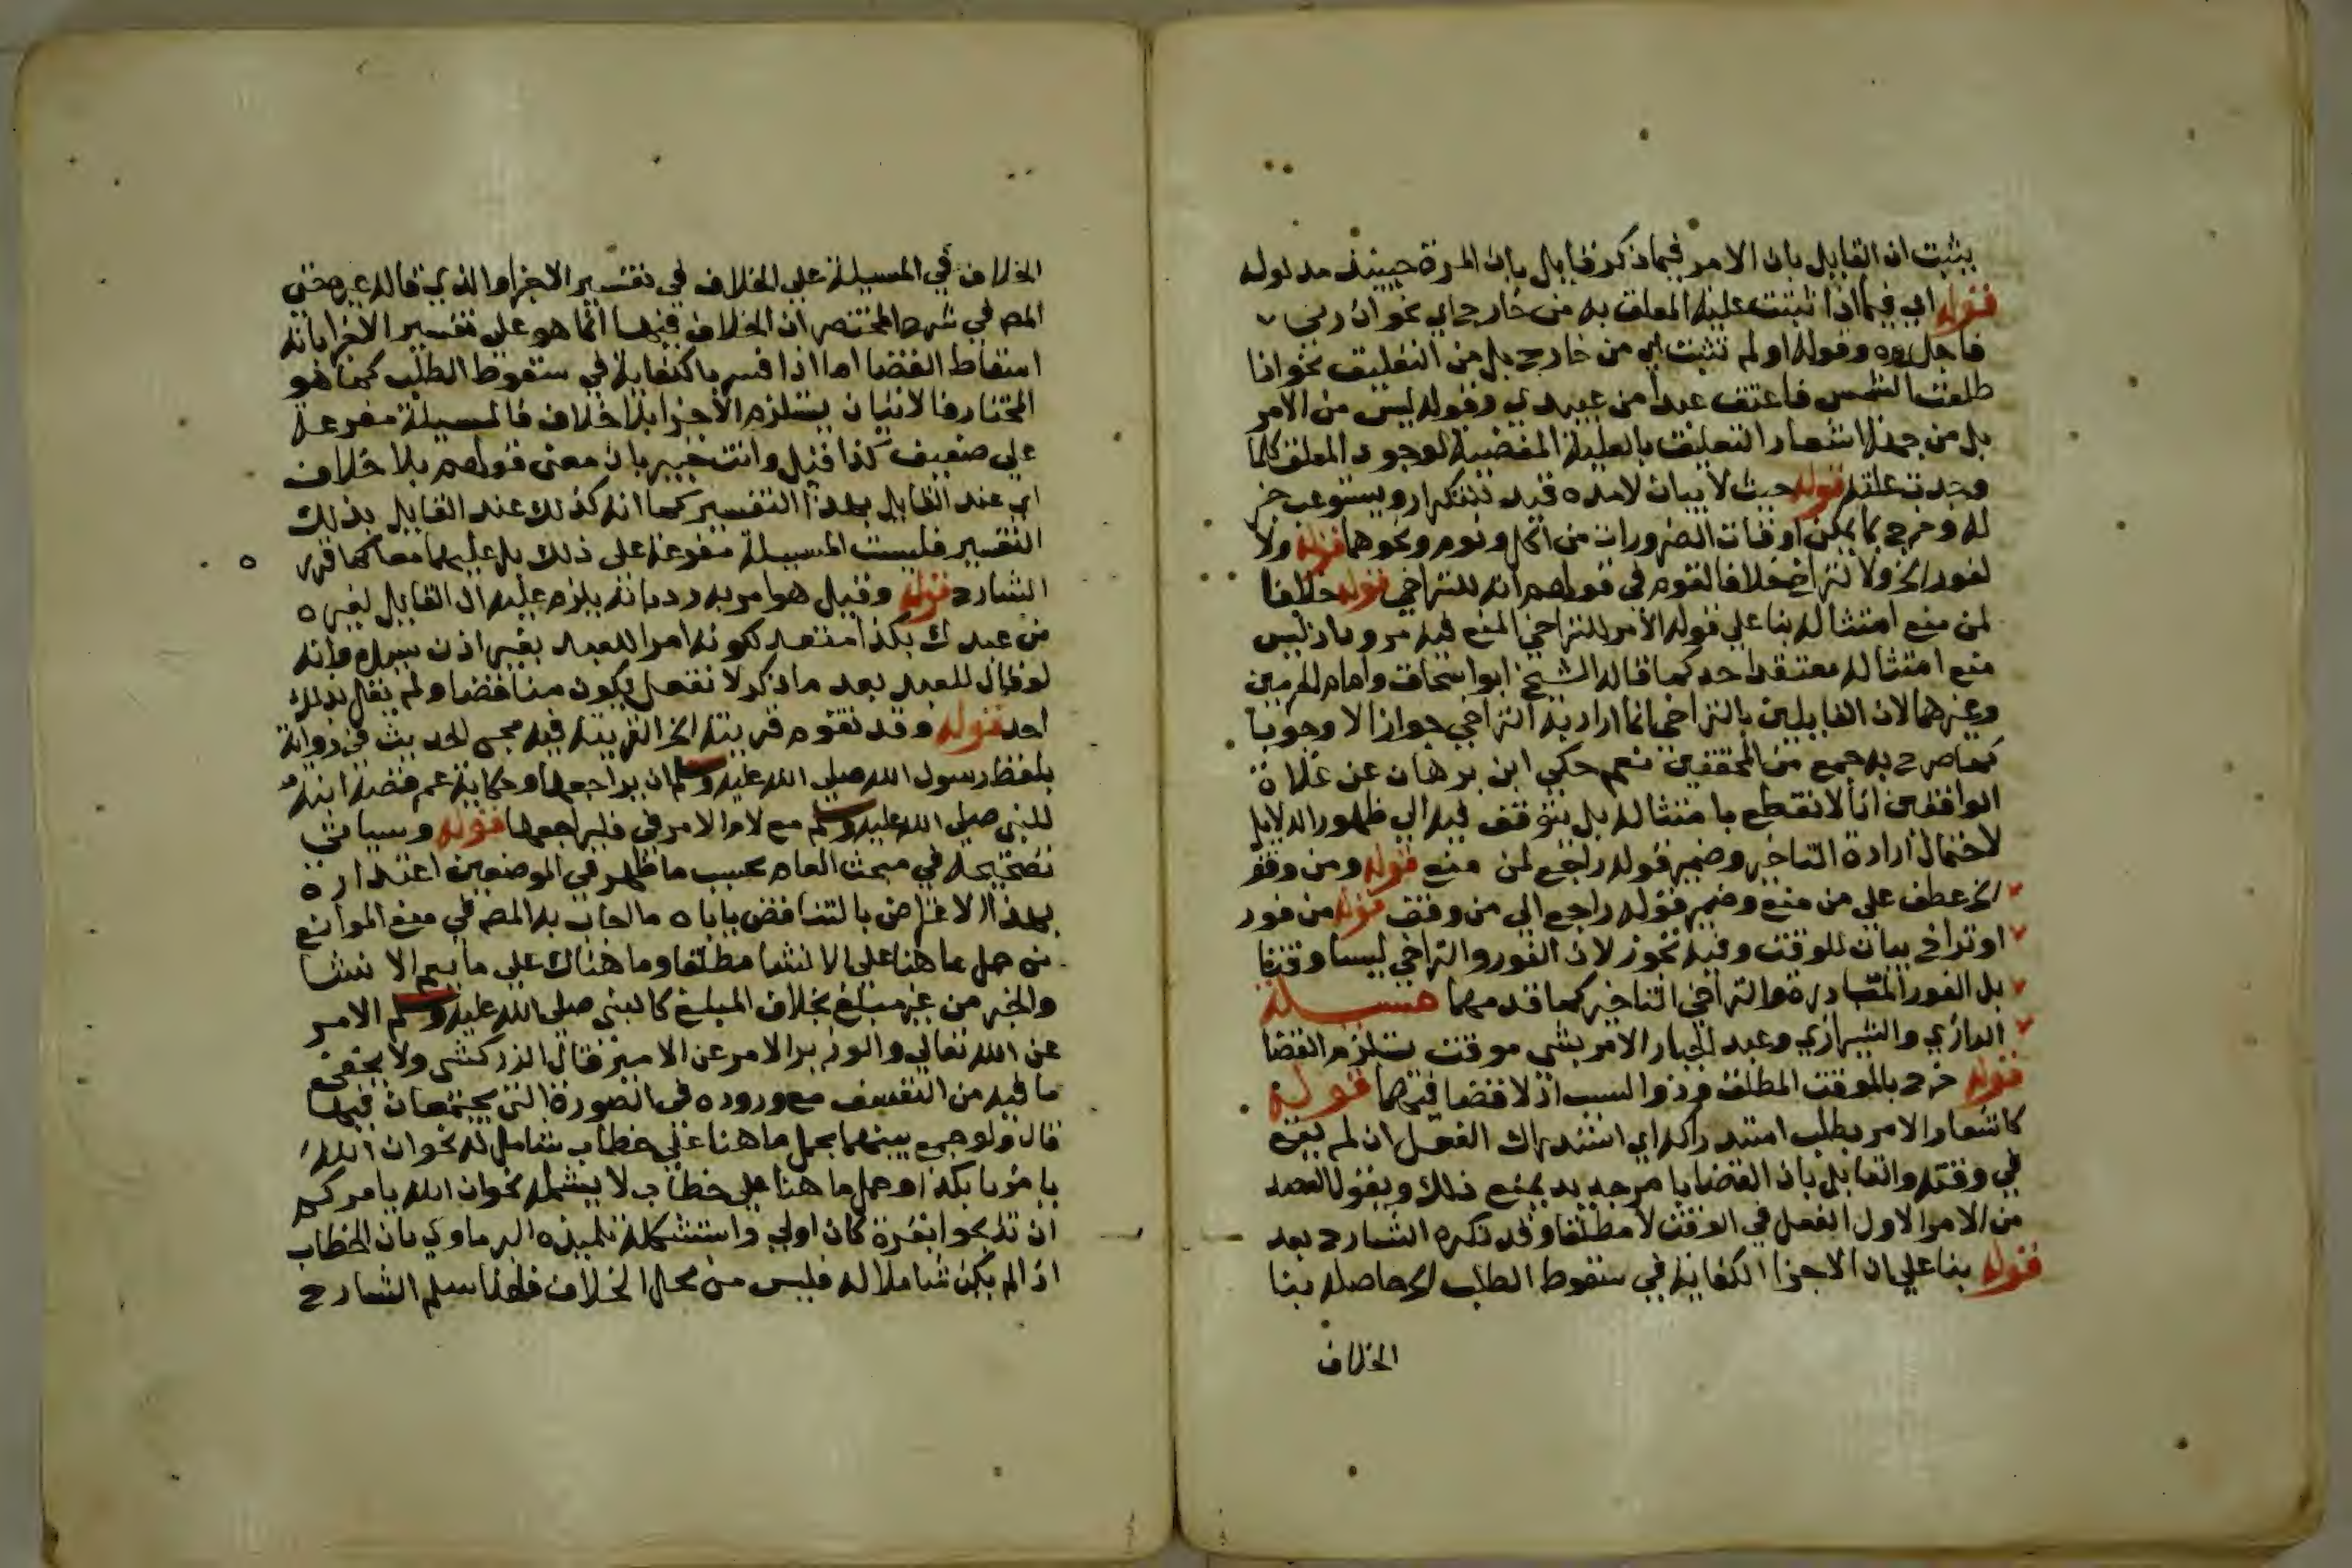 يثبت ان القايل بان الامر فيما ذكر قايل بان المرة حينيذ مدلوله
قوله اي فيما اذا ثبتت علية المعلق به من خارج اي نحو ان زنى
فاجلدوه وقوله او لم تثبت اي من خارج بل من التعليق نحو اذا
طلعت الشمس فاعتق عبدا من عبيدي وقوله ليس من الامر
بل من جهة اشعار التعليق بالعلية المقتضية لوجود المعلق كلما
وجدت علته قوله حيث لا بيان لامده قيد للتكرار ويستوعب خبر
له وخرج بما يمكن اوقات الضرورات من اكل ونوم ونحوهما قوله ولا
لفور الخ ولا لتراخ خلافا لقوم في قولهم انه للتراخي قوله خلافا
لمن منع امتثاله بناء على قوله الامر للتراخي المنع فيه مردود اذ ليس
منع امتثاله معتقد احد كما قاله الشيخ ابو اسحاق وامام الحرمين
وغيرهما لان القايلين بالتراخي انما اراد به التراخي جوازا لا وجوبا
كما صرح به جمع من المحققين نعم حكي ابن برهان عن غلاة
الواقفين انا لا نقطع بامتثاله بل نتوقف فيه الى ظهور الدلايل
لاحتمال ارادة التاخير وضمير قوله راجع لمن منع قوله ومن وقف
الخ عطف على من منع وضمير قوله راجع الى من وقف قوله من فور
او تراخ بيان للوقت وفيه تجوز لان الفور والتراخي ليسا وقتا
بل الفور المبادرة والتراخي التاخير كما قدمهما مسيلة
الرازي والشيرازي وعبد الجبار الامر بشي موقت يستلزم القضا
قوله خرج بالموقت المطلق وذو السبب اذ لا قضا فيهما قوله
كاشعار الامر بطلب استدراكه اي استدراك الفعل ان لم يقع
في وقته والقايل بان القضا بامر جديد يمنع ذلك ويقول القصد
من الامر الاول الفعل في الوقت لا مطلقا وقد ذكره الشارح بعد
قوله بنا على ان الاجزا الكفاية في سقوط الطلب الخ حاصله بنا
الخلاف
الخلاف في المسيلة على الخلاف في تفسير الاجزا والذي قاله غيره حتى
المص في شرح المختصر ان الخلاف فيها انما هو على تفسير الاجزا بانه
اسقاط القضا اما اذا فسر بالكفاية في سقوط الطلب كما هو
المختار فالاتيان يستلزم الاجزا بلا خلاف فالمسيلة مفرعة
على ضعيف كذا قيل وانت خبير بان معنى قولهم بلا خلاف
اي عند القايل بهذا التفسير كما انه كذلك عند القايل بذلك
التفسير فليست المسيلة مفرعة على ذلك بل عليهما معا كما قرره
الشارح قوله وقيل هو امر به رد بانه يلزم عليه ان القايل لغيره
مر عبدك بكذا متعد لكونه امر العبد بغير اذن سيده وانه
لو قال للعبد بعد ما ذكر لا تفعل يكون مناقضا ولم يقل بذلك
احد قوله وقد تقوم قرينة الخ القرينة فيه مجي الحديث في رواية
بلفظ رسول الله صلى الله عليه وسلم ان يراجعها وحكاية عمر قضية ابنه
للنبي صلى الله عليه وسلم مع لام الامر في فليراجعها قوله وسياتي
تصحيحه في مبحث العام بحسب ما ظهر في الموضعين اعتذاره
بهذا الاعتراض بالتناقض باباه ما اجاب به المص في منع الموانع
من حمل ما هنا على الانشا مطلقا وما هناك على ما يعم الانشا
والخبر من غير مبلغ بخلاف المبلغ كالنبي صلى الله عليه وسلم الامر
عن الله تعالى والوزير الامر عن الامير قال الزركشي ولا يخفى
ما فيه من التعسف مع وروده في الصورة التي يجتمعان فيها
قال ولو جمع بينهما بحمل ما هنا على خطاب شامل له نحو ان الله
يامرنا بكذا وحمل ما هنا على خطاب لا يشمله نحو ان الله يامركم
ان تذبحوا بقرة كان اولى واستشكله تلميذه البرماوي بان الخطاب
اذا لم يكن شاملا له فليس من محل الخلاف فلهذا سلم الشارح